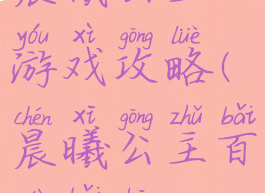 yóu xì gōng lüè
游戏攻略(
chén xī gōng zhǔ bǎi
晨曦公主百